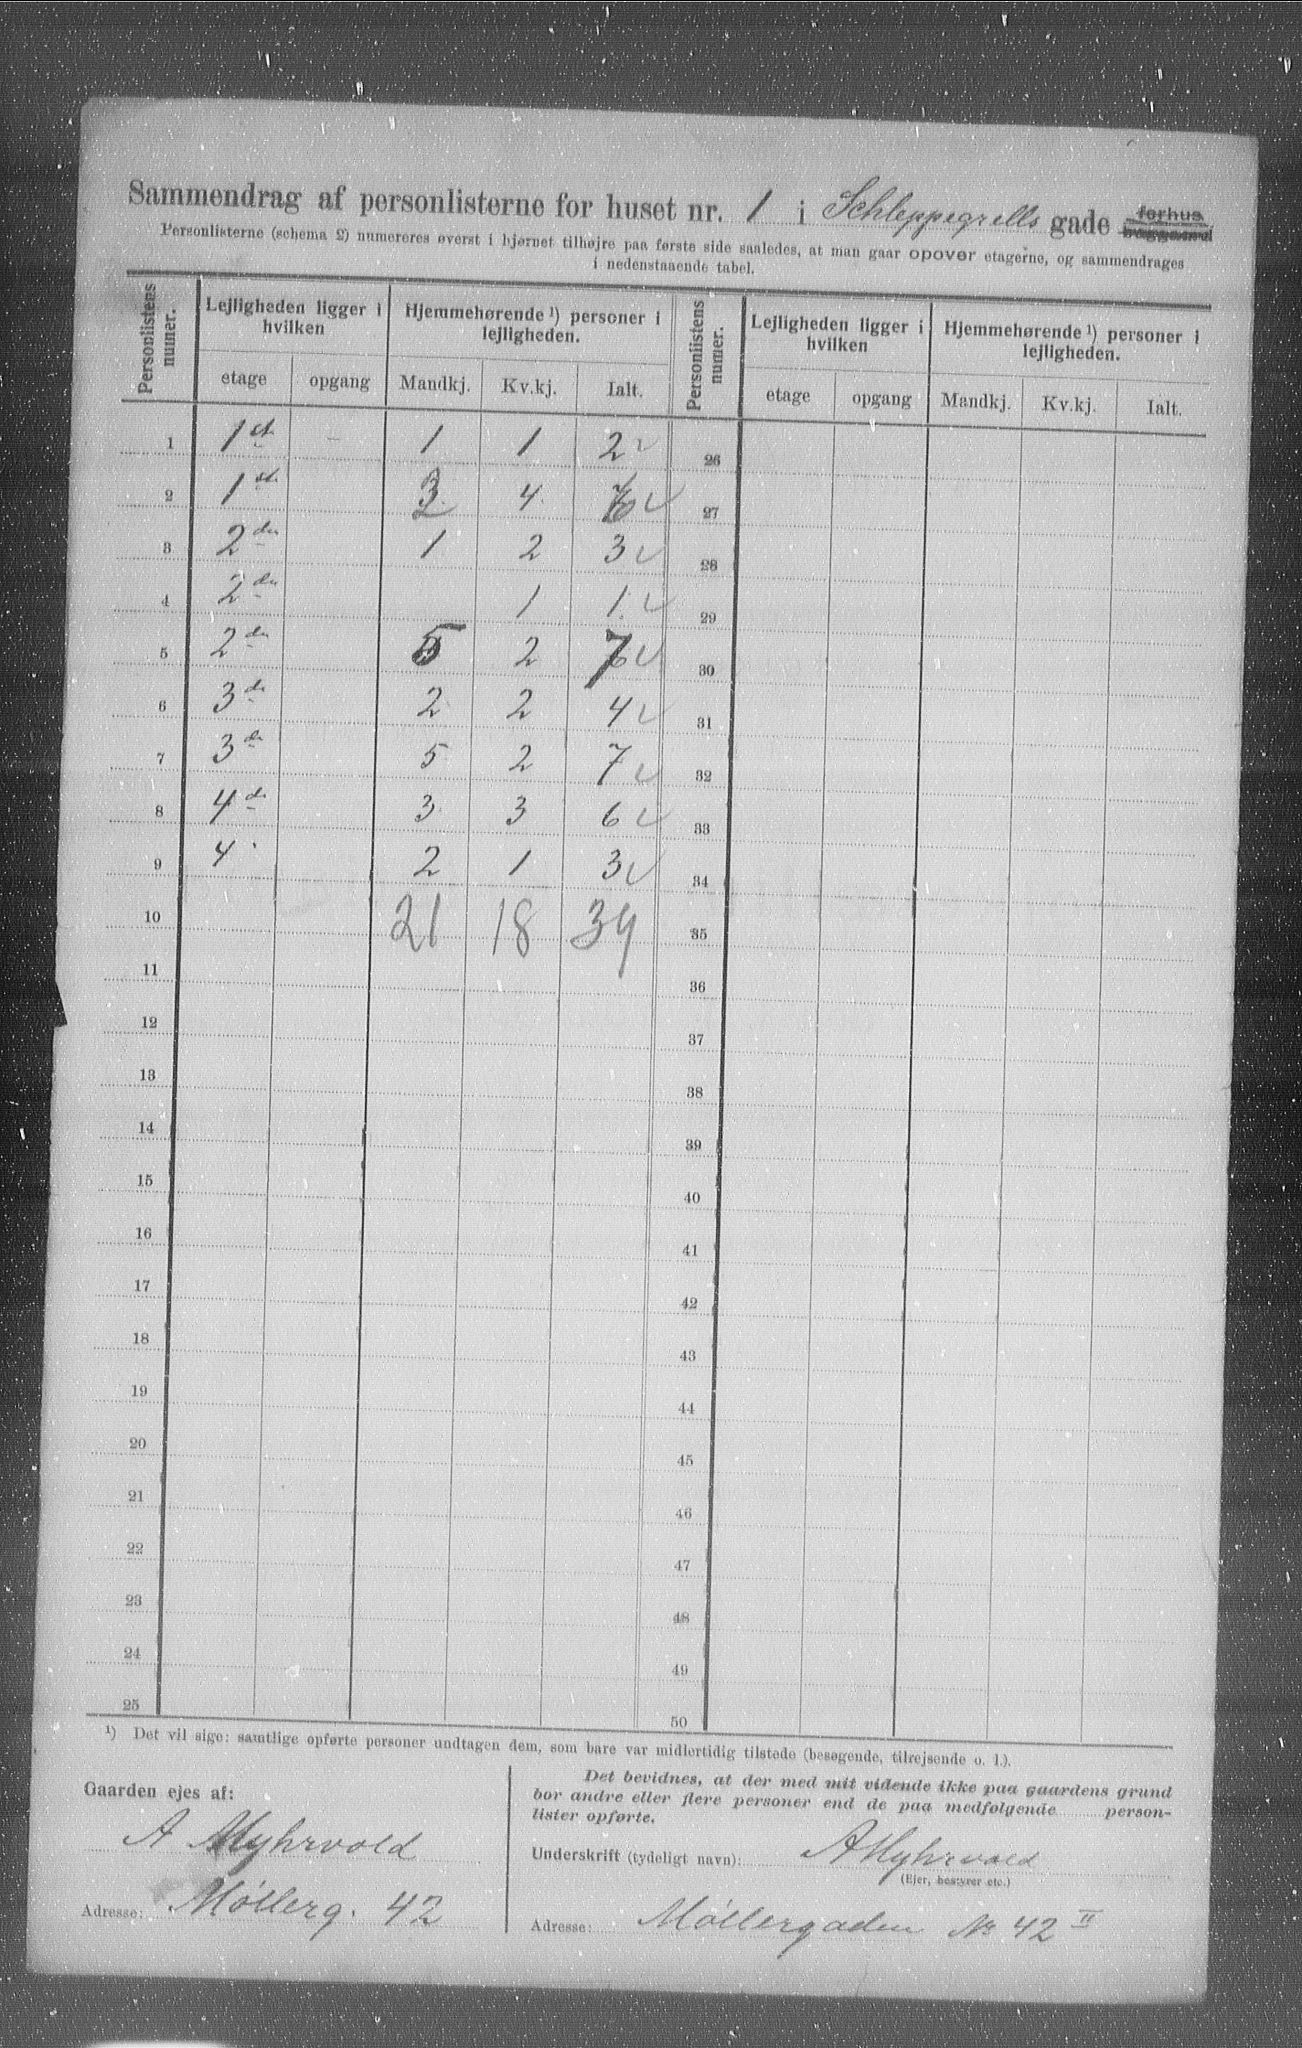 Sammendrag af personlisterne for huset nr. 1 i Schleppegrells gade forhus
Personlisterne (schema 2) numereres øverst i hjørnet tilhøjre paa første side saaledes, at man gaar opover etagerne, og sammendrages
i nedenstaaende tabel.
Personlistens numer. Lejligheden ligger i hvilken Hjemmehørende ¹) personer i lejligheden. Personlistens numer. Lejligheden ligger i hvilken Hjemmehørende ¹) personer i lejligheden.
etage opgang Mandkj. Kv.kj. Ialt. etage opgang Mandkj. Kv.kj. Ialt.
1 1st - 1 1 2 ✓ 26
2 1st 2 4 6 ✓ 27
3 2den 1 2 3 ✓ 28
4 2den 1 1 ✓ 29
5 2den 5 2 7 ✓ 30
6 3de 2 2 4 ✓ 31
7 3de 5 2 7 ✓ 32
8 4de 3 3 6 ✓ 33
9 4 2 1 3 ✓ 34
10 21 18 39 35
11 36
12 37
13 38
14 39
15 40
16 41
17 42
18 43
19 44
20 45
21 46
22 47
23 48
24 49
25 50
¹) Det vil sige: samtlige opførte personer undtagen dem, som bare var midlertidig tilstede (besøgende, tilrejsende o. l.).
Gaarden ejes af:
A Myhrvold
Adresse: Møllerg. 42
Det bevidnes, at der med mit vidende ikke paa gaardens grund
bor andre eller flere personer end de paa medfølgende person-
lister opførte.
Underskrift (tydeligt navn): A Myhrvold
(Ejer, bestyrer etc.)
Adresse: Møllergaden No 42 II